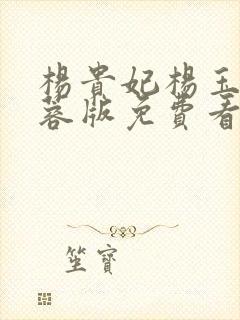 楊貴妃楊玉
蓉版免費看
坐寶